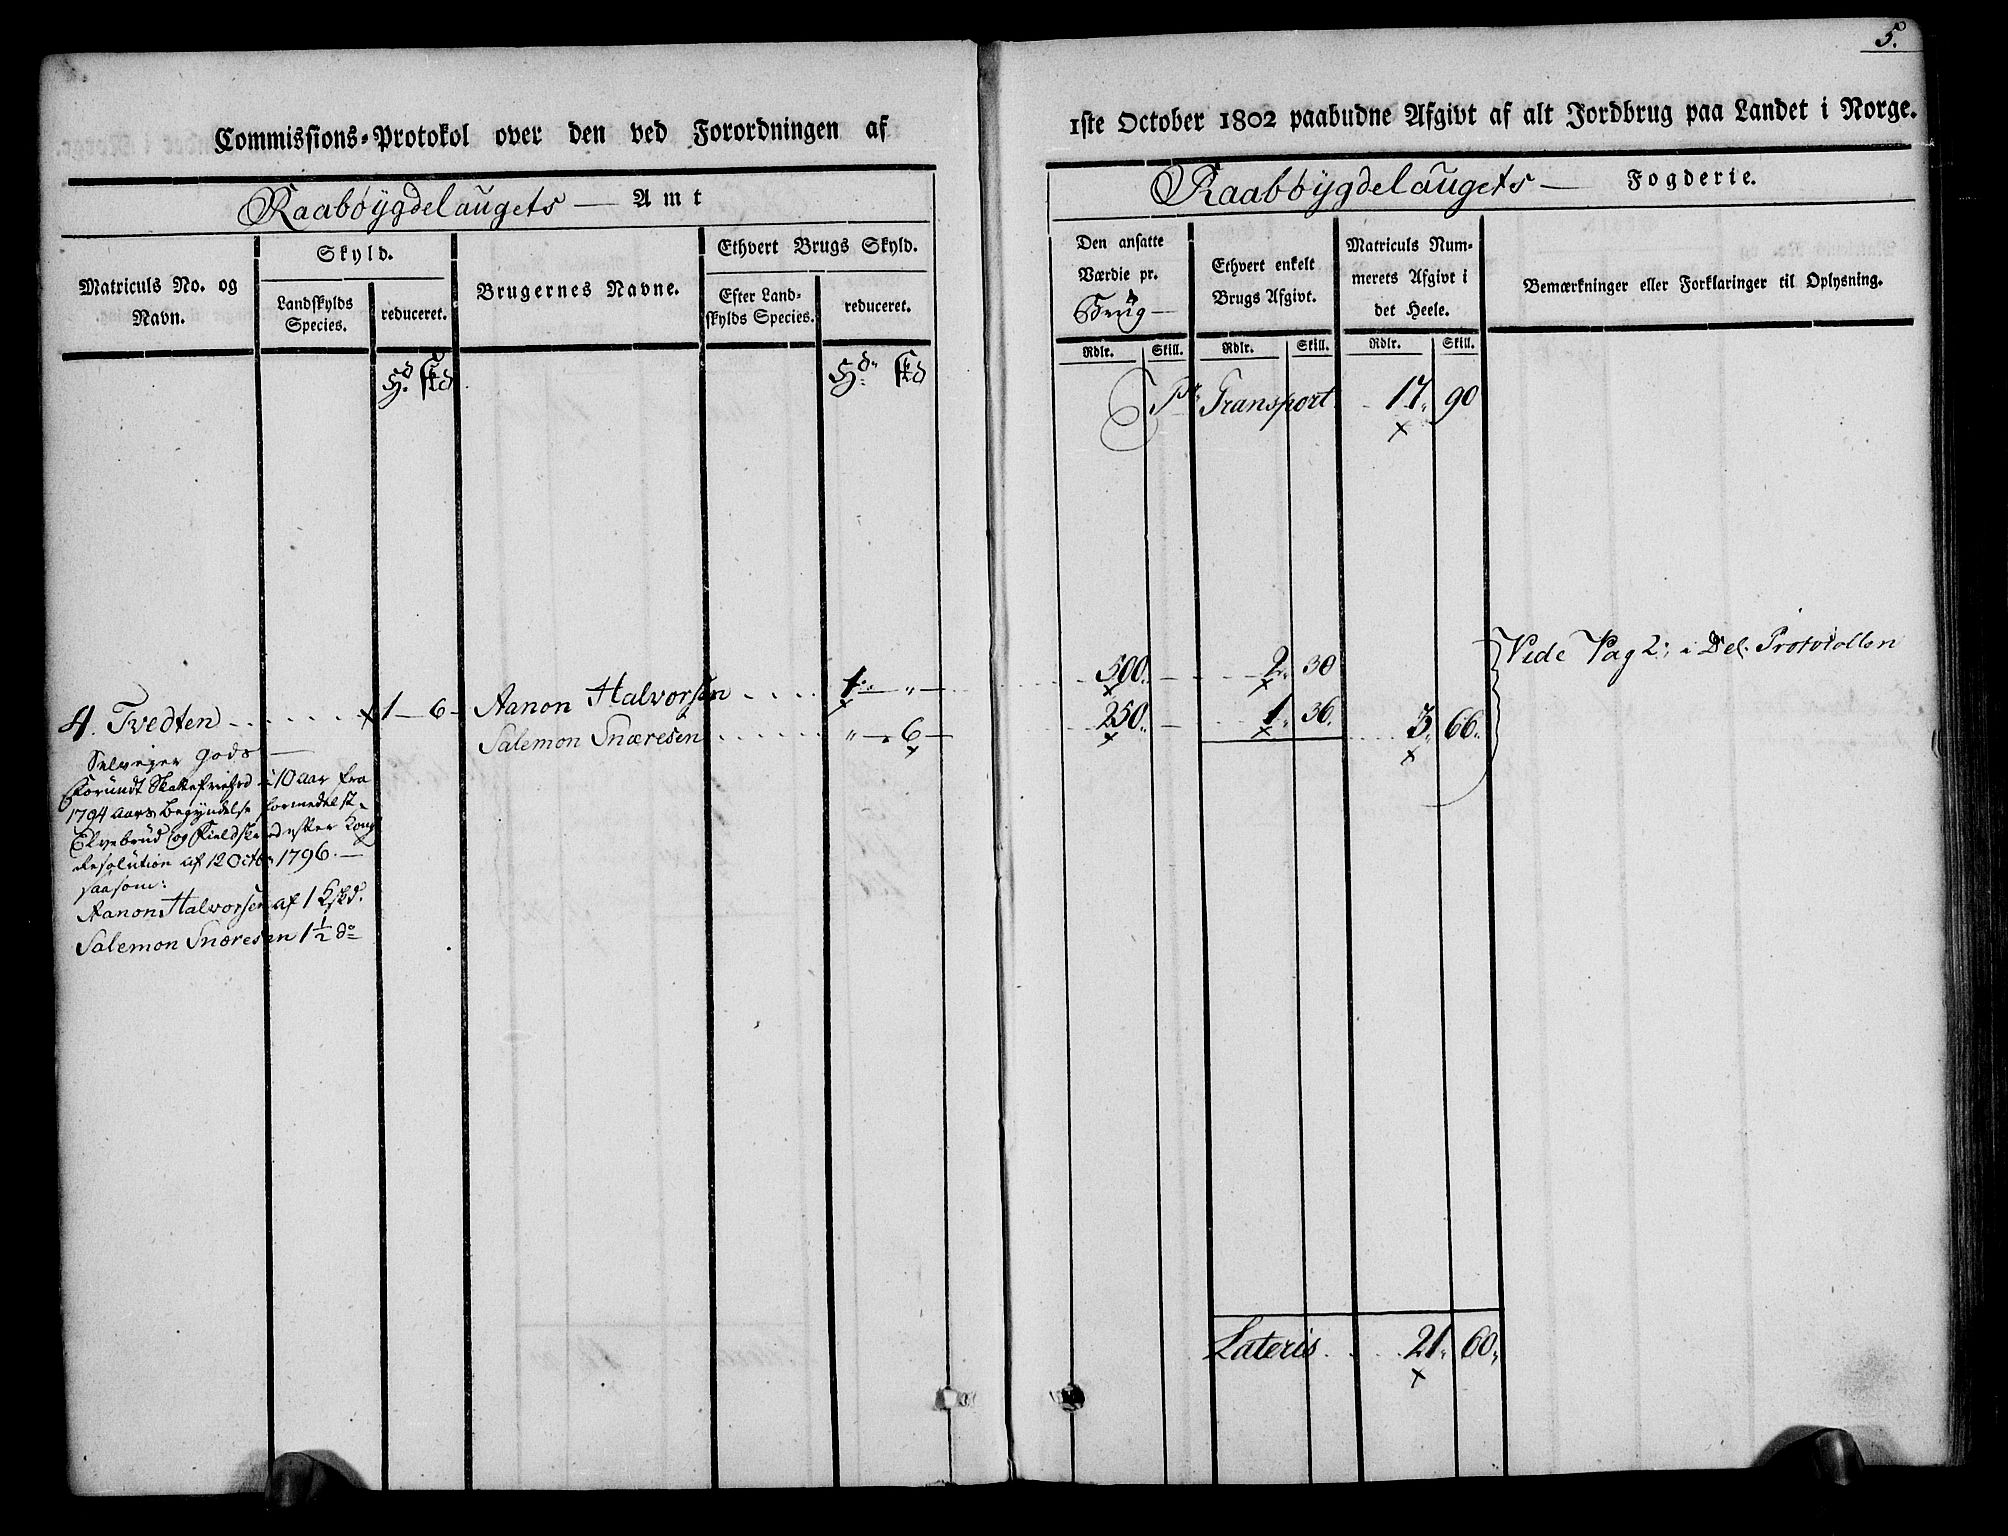 5.
Commissions-Protokol over den ved Forordningen af
1ste October 1802 paabudne Afgivt af alt Jordbrug paa Landet i Norge.
Raabøygdelaugets — Amt
Raabøygdelaugets — Fogderie.
Matriculs No. og
Navn.
Skyld.
Landskylds
Species.
reduceret.
Brugernes Navne.
Ethvert Brugs Skyld.
Efter Land-
skylds Species.
reduceret.
Den ansatte
Værdie pr.
Brug —
Ethvert enkelt
Brugs Afgivt.
Matriculs Num-
merets Afgivt i
det Heele.
Bemærkninger eller Forklaringer til Oplysning.
Rdlr. Skill. Rdlr. Skill. Rdlr. Skill.
Hd. skd
Hd. skd
Pr. Transport 17. 90
4. Tvedten 1 — 6 — Aanon Halvorsen 1 „ 500. 2. 30
Salemon Snøresen „ 6 — 250. 1. 36. 3. 66.
Vide Pag 2. i Del. Protokollen
Selveyer Gods —
Forundt Skattefriehed i 10 aar fra
1794 Aars Begyndelse formedelst
Elvebrud og Fieldskred efter Kongl.
Resolution af 12 Octbr. 1796. —
saasom:
Aanon Halvorsen af 1 Kskd.
Salemon Snøresen 1 1/2 do
Lateris. 21. 60.